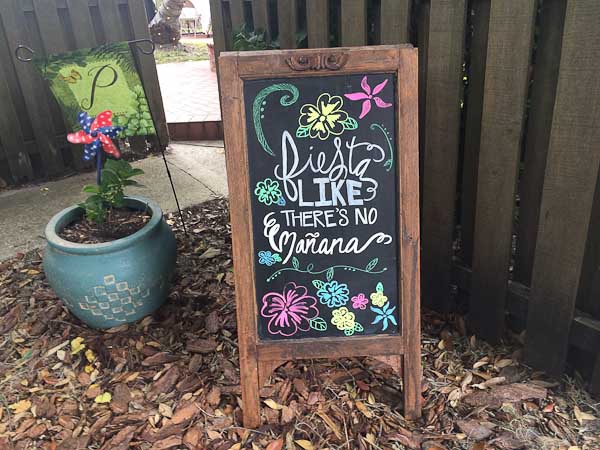 P
fiesta
LIKE
THERE'S NO
Mañana